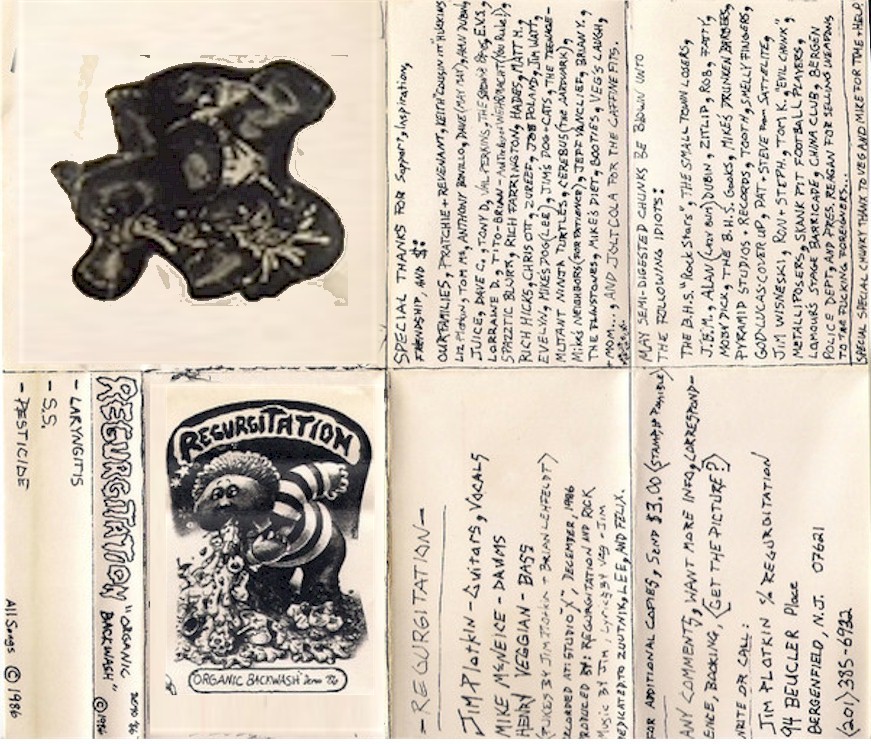 SPECIAL THANKS FOR Support, Inspiration,
FRIENDSHIP, AND $:
OUR FAMILIES, PRATCHIE + REVENANT, KEITH "COUSIN ITT" HUCKINS
LIZ PLOTKIN, TOM M., ANTHONY BOVILLO, DAVE (MAY MAY), ALAN DUBIN,
JUICE, DAVE C., TONY D., VAL, PERKINS, E.V.S.,
LORRAINE D., TITO-BRIAN - (You Rule!),
SPAZZTIC BLURR, RICH FARRINGTON, HADES, MATT M.,
RICH HICKS, CHRIS OTT, SUREEF, JOE POLAND, JIM WATT,
EVELYN, MIKE'S DOG (LEE), JIM'S DOG + CATS, THE TEENAGE
MUTANT NINJA TURTLES, CEREBUS (THE AARDVARK),
MIKE'S NEIGHBORS (FOR PATIENCE), JEFF VANCLIEF, BRIAN Y.,
THE FLINTSTONES, MIKE'S DIET, BOOTIES, VEG'S LAUGH,
MOM..., AND JOLT COLA FOR THE CAFFINE FITS.
MAY SEMI-DIGESTED CHUNKS BE BLOWN UNTO
THE FOLLOWING IDIOTS:
THE B.H.S. "Rock Stars", THE SMALL TOWN LOSERS,
J.B.M., ALAN (LAZY BUM) DUBIN, ZITLIP, ROB, FATTY,
MOBY DICK, THE B.H.S. GOOKS, MIKE'S DRUNKEN BARBERS,
PYRAMID STUDIOS + RECORDS, TOOTH, SMELLY FINGERS,
GOD, LUCAS COVER UP, PAT + STEVE FROM SATTELITE,
JIM WISNESKI, RON + STEPH, TOM K., "EVIL CHUNK",
METALLIPOSERS, SKANK PIT FOOTBALL PLAYERS,
LAMOUR'S STAGE BARRICADE, CHINA CLUB, BERGEN
POLICE DEPT, AND PRES. REAGAN FOR SELLING WEAPONS
TO THE FUCKING FOREIGNERS...
SPECIAL SPECIAL CHUNKY THANX TO VEG AND MIKE FOR TIME + HELP.
- LARYNGITIS
- S.S.
- PESTICIDE
All Songs © 1986
REGURGITATION "ORGANIC BACKWASH" DEMO '86 © 1986
REGURGITATION
"ORGANIC BACKWASH" Demo '86
- REGURGITATION -
JIM PLOTKIN - Guitars, VOCALS
MIKE McNEICE - DRUMS
HENRY VEGGIAN - BASS
(PUKES BY JIM PLOTKIN + BRIAN LEHFELDT)
RECORDED AT: STUDIO X, DECEMBER, 1986
PRODUCED BY: REGURGITATION AND RICK
MUSIC BY JIM / Lyrics BY VEG + JIM
DEDICATED TO ZUUTNIK, LEE, AND FELIX.
FOR ADDITIONAL COPIES, SEND $3.00 (STAMP, IF POSSIBLE)
ANY COMMENTS, WANT MORE INFO, CORRESPOND-
ENCE, BOOKING, (GET THE PICTURE?)
WRITE OR CALL:
JIM PLOTKIN % REGURGITATION
94 BEUCLER Place
BERGENFIELD, N.J. 07621
(201) 385-6922